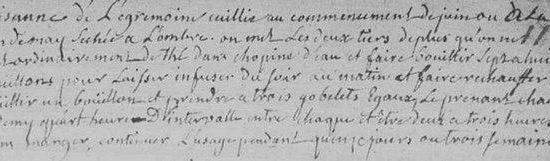 tisanne de L'egremoine cuillis au commencement de juin ou a la
fin de may sechée a L'ombre. on met Les deux tiers de plus qu'on ne
met ordinairement de thé dans chopine d'eau et faire bouillir sept a huit
bouillons pour Laisser infuser du soir au matin et faire rechauffer
bouillir un bouillon et prendre a trois gobelets Egaux Le prenant chaud
demy quart heure D'intervalle entre chaque et être deux a trois heures
manger, continuer L'usage pendant quinze jours ou trois semaines